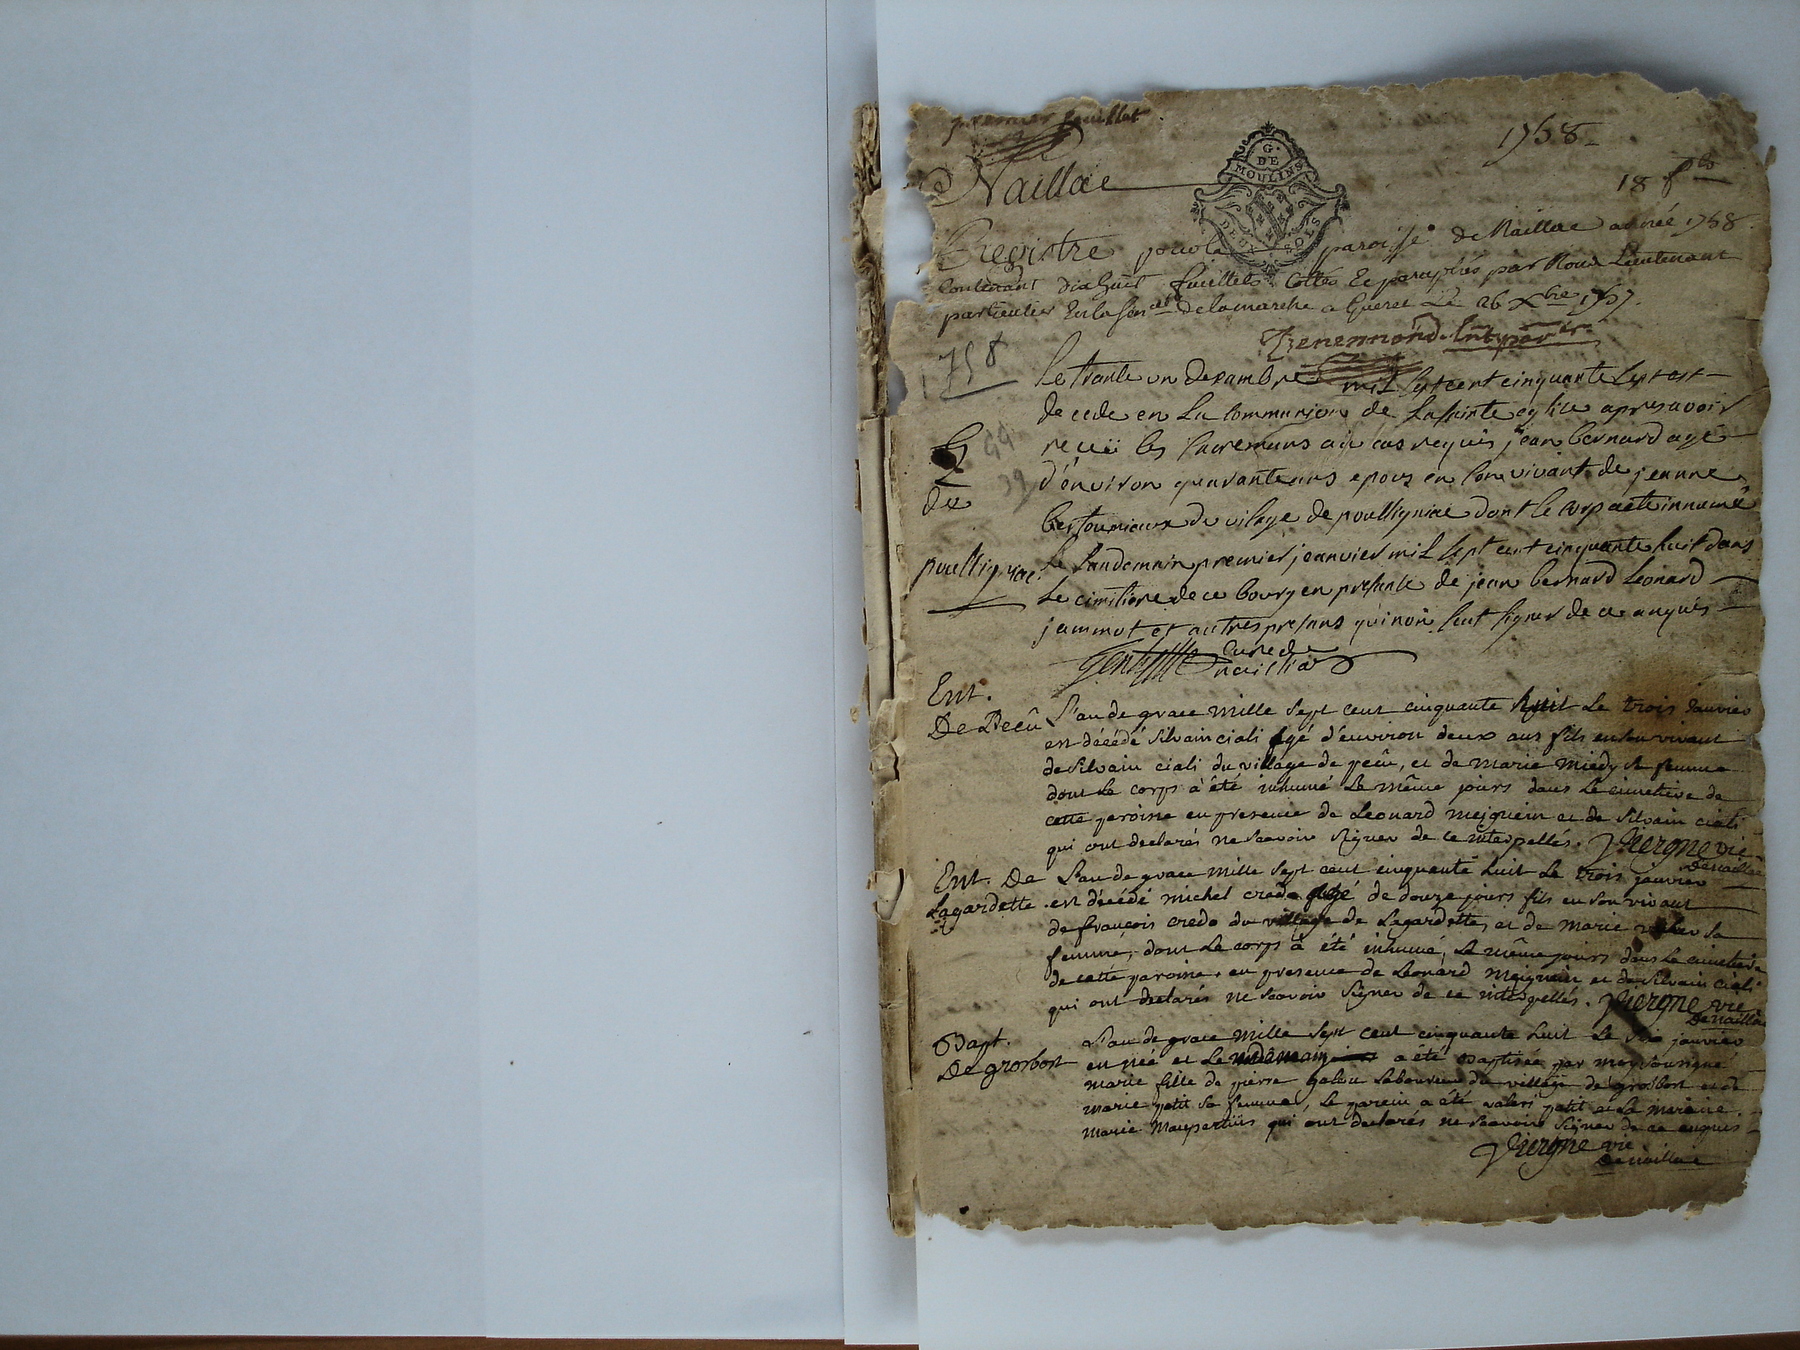 premier feuillet
1758
G. DE MOULINS
DEUX SOLS
Naillac
18 f
Registre pour la paroisse de Naillac année 1758
Contenant dix huit feuillets cottés et paraphés par Nous Lieutenant
particulier En la sen de la marche a Gueret Le 26 Xbre 1757.
1758
Le trante un dexambre mil sept cent cinquante sept est
decede en la Communion de la sainte eglise apres avoir
reçeü les sacremans au cas requis jean bernard age
d'environ quarante ans epoux en son vivant de jeanne
du vilage de poulligniac dont le corp a ete innumé
de
poullignac
le landemain premier jeanvier mil sept cent cinquante huit dans
Le cimitiere de ce bourg en presance de jean bernard Leonard
jammot et autres presans qui n'on seut signer de ce anquis
curé de naillac
Ent.
De Pecû
L'an de grace mille sept cent cinquante huit Le trois Janvier
est décédé silvain ciali agé d'environ deux ans fils en son vivant
de silvain ciali du village de pecû, et de marie sa femme
dont Le corps à été inhumé Le même jours dans Le cimetiere de
cette paroisse en presence de Leonard meignein et de silvain ciali
qui ont declarés ne scavoir signer de ce interpellés. Vergne vic
De naillac
Ent. De
Lagardette
L'an de grace mille sept cent cinquante huit Le trois janvier
est décédé michel credo agé de douze jours fils en son vivant
de françois credo du village de Lagardette, et de marie sa
femme, dont Le corps à été inhumé, Le même jours dans Le cimetiere
de cette paroisse, en presence de Leonard meignein et de silvain ciali
qui ont declarés ne scavoir signer de ce interpellés. Vergne vic
De naillac
Bapt.
De grosbost
L'an de grace mille sept cent cinquante huit Le six janvier
est née et Le lendemain a été Baptisée par moy sousigné
marie fille de pierre Laboureur du village de grosbost et de
marie petit sa femme, Le parein a été valeri petit et La maraine
marie maupertuis qui ont declarés ne scavoir signer de ce enquis
Vergne vic
De naillac